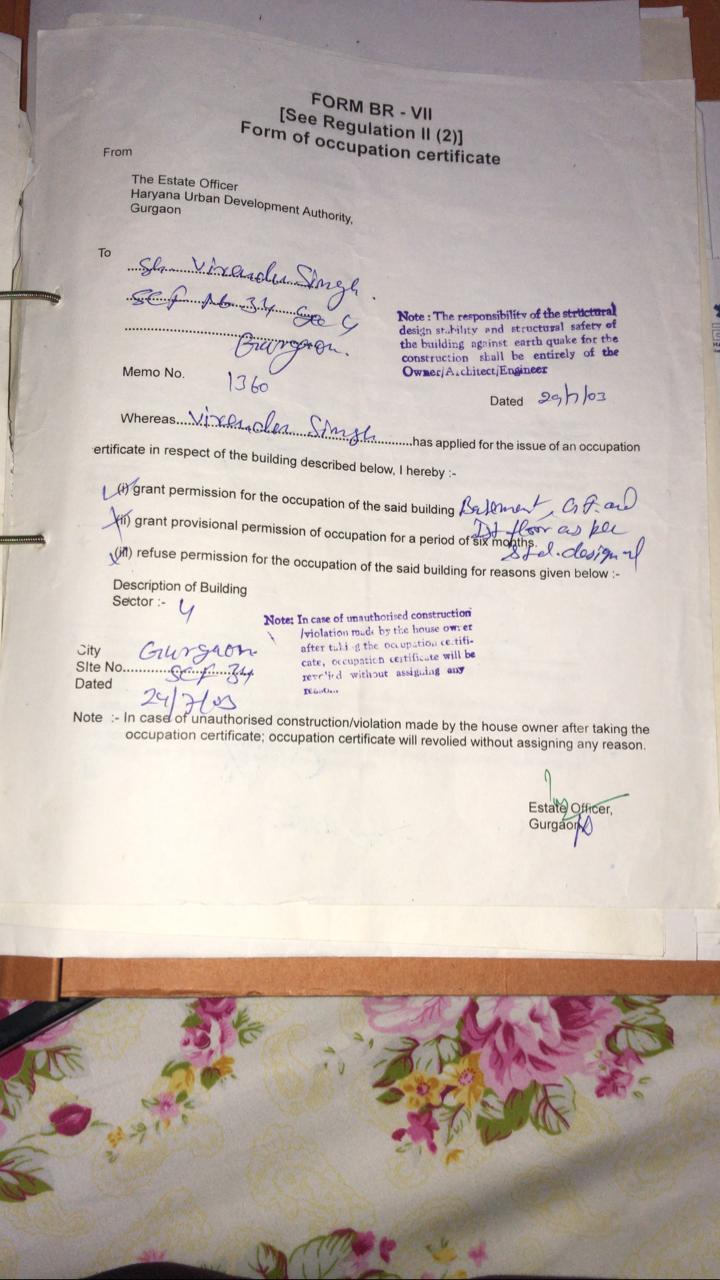 FORM BR - VII
[See Regulation II (2)]
Form of occupation certificate
From
The Estate Officer
Haryana Urban Development Authority,
Gurgaon
To
Sh. Virender Singh
SCF No 34 Sec 4
Gurgaon.
Note : The responsibility of the structural
design stability and structural safety of
the building against earth quake for the
construction shall be entirely of the
Owner/Architect/Engineer
Memo No. 1360
Dated 29/7/03
Whereas Virender Singh has applied for the issue of an occupation
ertificate in respect of the building described below, I hereby :-
(i) grant permission for the occupation of the said building Basement, G.F. and
Ist floor as per
(ii) grant provisional permission of occupation for a period of six months.
Std. design
(iii) refuse permission for the occupation of the said building for reasons given below :-
Description of Building
Sector :- 4
City Gurgaon
SIte No. SCF 34
Dated 29/7/03
Note: In case of unauthorised construction
/violation made by the house owner
after taking the occupation certifi-
cate, occupation certificate will be
without assigning any
Note :- In case of unauthorised construction/violation made by the house owner after taking the
occupation certificate; occupation certificate will revolied without assigning any reason.
Estate Officer,
Gurgaon